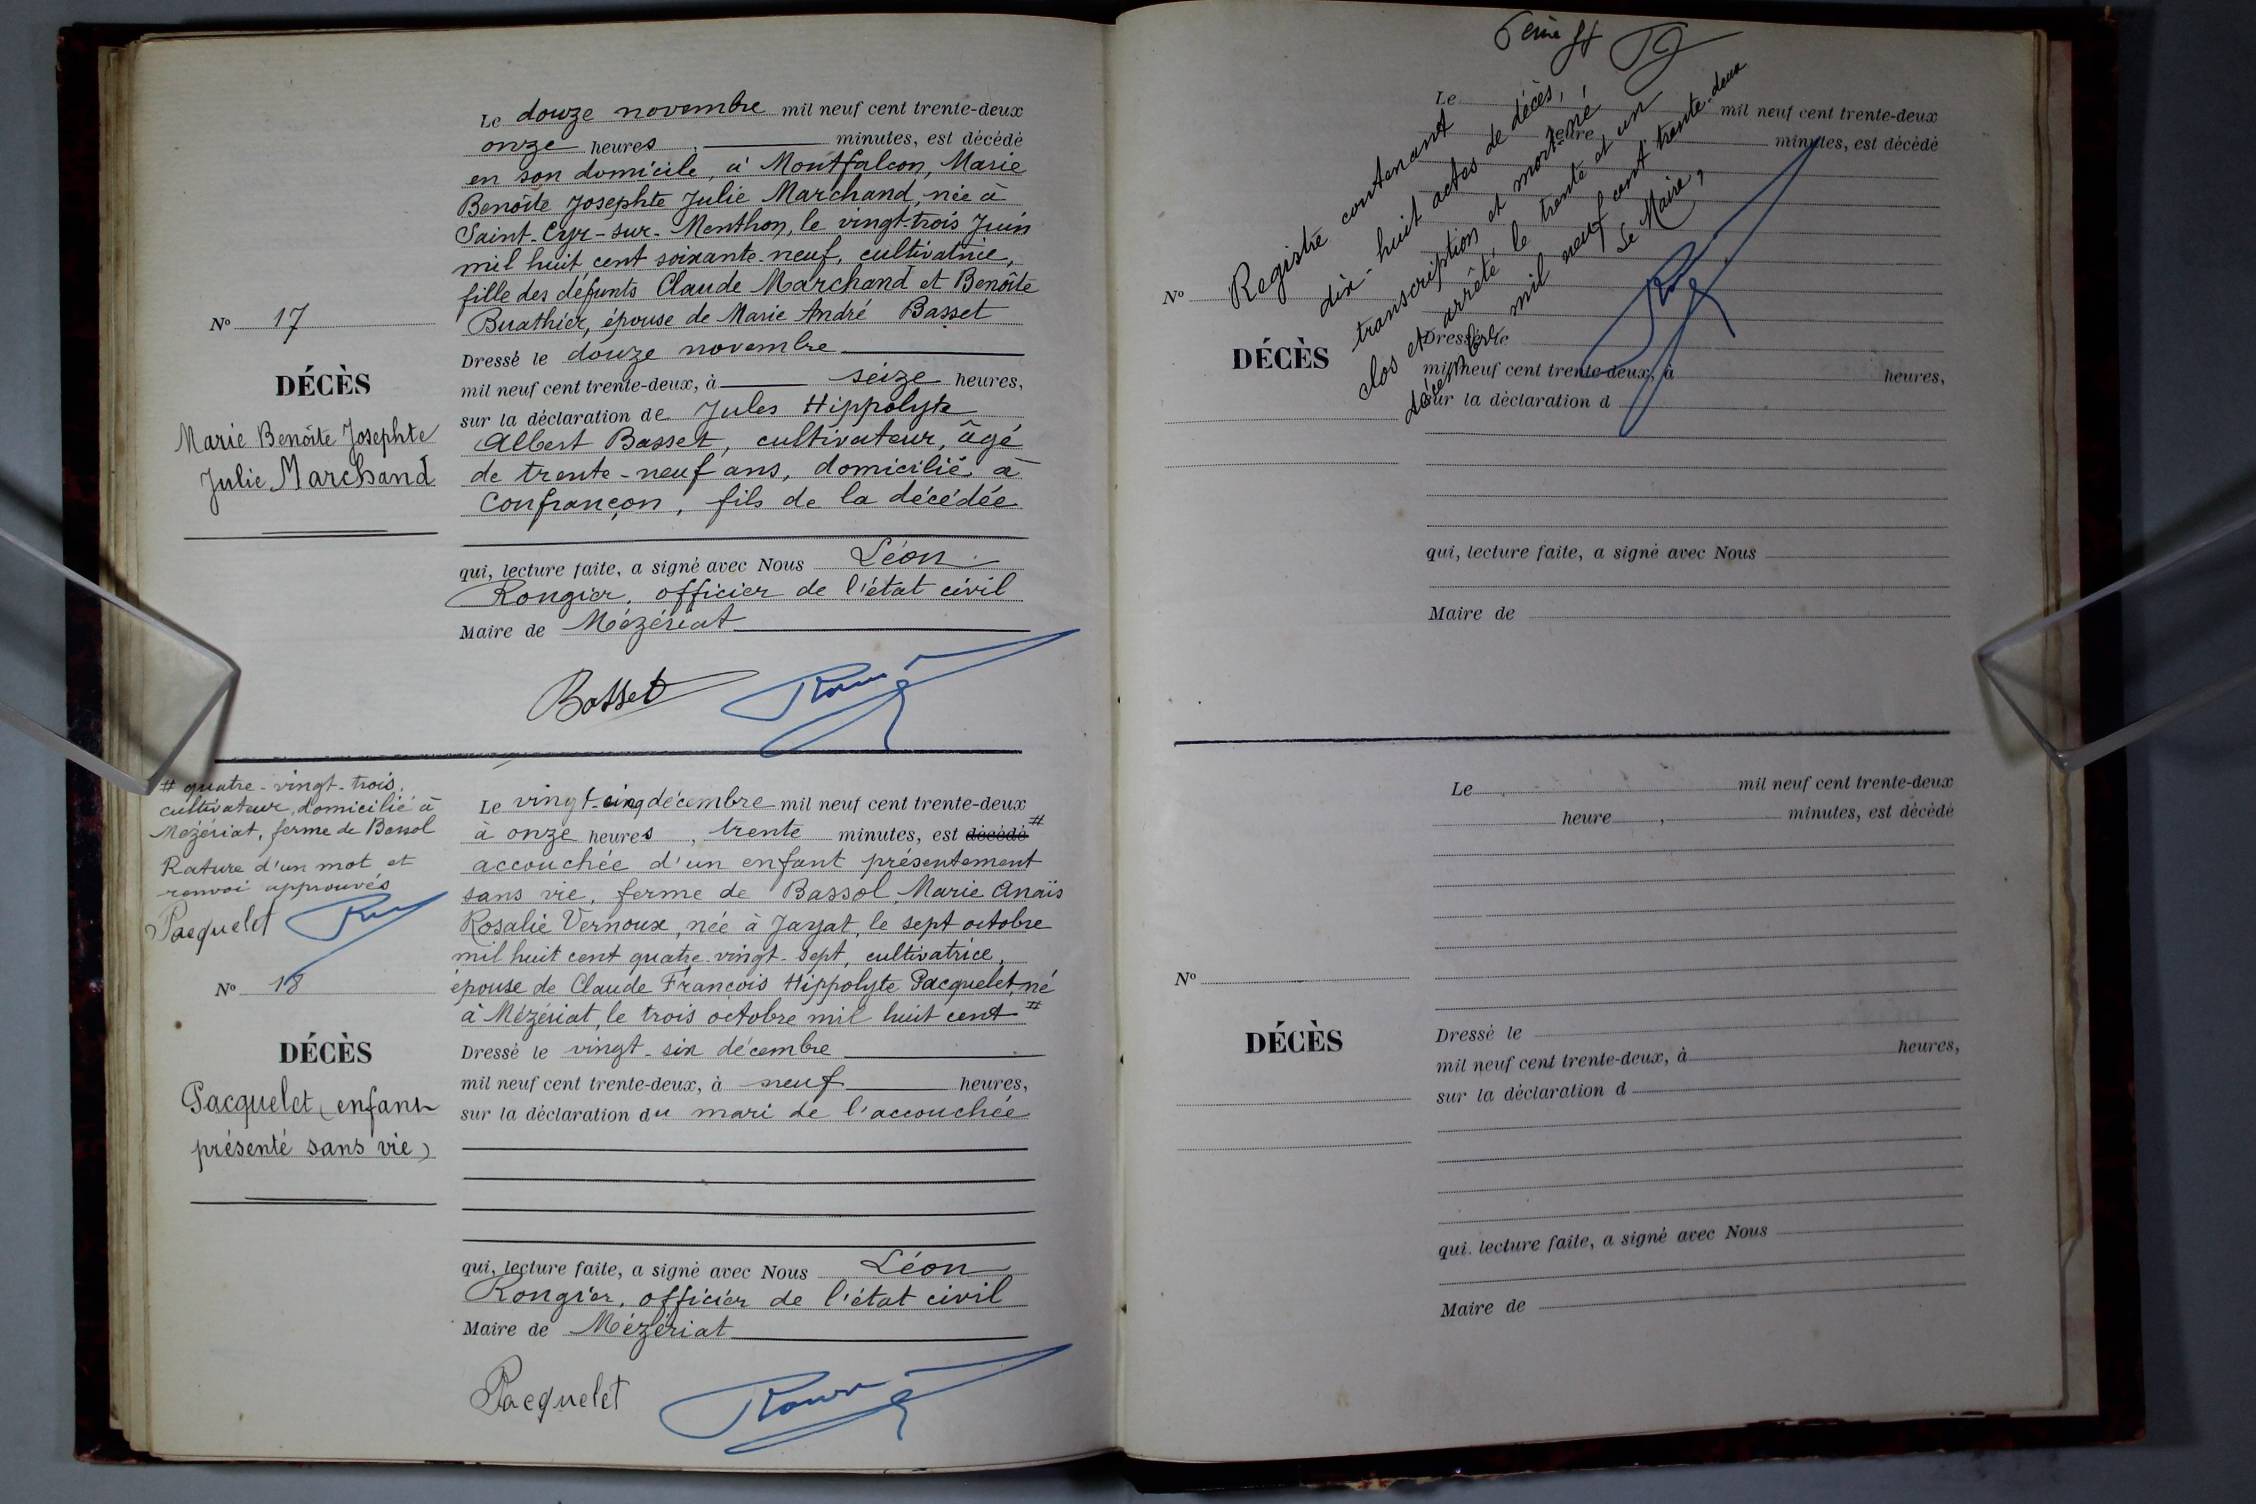 Le douze novembre mil neuf cent trente-deux
onze heures, minutes, est décédé
en son domicile, à Montfalcon, Marie
Benoîte Josephte Julie Marchand, née à
Saint-Cyr-sur-Menthon, le vingt-trois Juin
mil huit cent soixante-neuf, cultivatrice,
fille des défunts Claude Marchand et Benoîte
Buathier, épouse de Marie André Basset
Dressé le douze novembre
mil neuf cent trente-deux, à seize heures,
sur la déclaration de Jules Hippolyte
Albert Basset, cultivateur, âgé
de trente-neuf ans, domicilié à
Confrançon, fils de la décédée
qui, lecture faite, a signé avec Nous Léon
Rongier, officier de l'état civil
Maire de Mézériat
Basset
No 17
DÉCÈS
Marie Benoîte Josephte
Julie Marchand
# quatre-vingt-trois,
cultivateur, domicilié à
Mézériat, ferme de Bassol
Rature d'un mot et
renvoi approuvés
Pacquelet
No 18
DÉCÈS
Pacquelet (enfant
présenté sans vie)
Le vingt-cinq décembre mil neuf cent trente-deux
à onze heures, trente minutes, est décédé #
accouchée d'un enfant présentement
sans vie, ferme de Bassol, Marie Anaïs
Rosalie Vernoux, née à Jayat, le sept octobre
mil huit cent quatre-vingt-sept, cultivatrice,
épouse de Claude François Hippolyte Pacquelet, né
à Mézériat, le trois octobre mil huit cent #
Dressé le vingt-six décembre
mil neuf cent trente-deux, à neuf heures,
sur la déclaration du mari de l'accouchée
qui, lecture faite, a signé avec Nous Léon
Rongier, officier de l'état civil
Maire de Mézériat
Pacquelet
Registre contenant
dix-huit actes de décès,
transcription et mort-né,
clos et arrêté, le trente et un
décembre mil neuf cent trente-deux
Le Maire,
Le mil neuf cent trente-deux
heure minutes, est décédé
No
DÉCÈS
Dressé le
mil neuf cent trente-deux, à heures,
sur la déclaration d
qui, lecture faite, a signé avec Nous
Maire de
Le mil neuf cent trente-deux
heure, minutes, est décédé
No
DÉCÈS
Dressé le
mil neuf cent trente-deux, à heures,
sur la déclaration d
qui, lecture faite, a signé avec Nous
Maire de